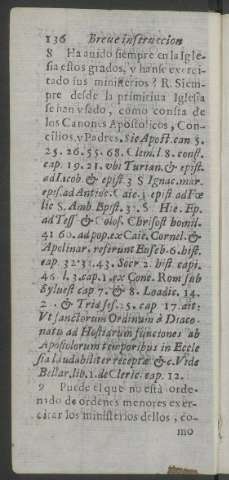 136 Breue instruccion
8 Ha auido siempre en la Igle-
sia estos grados, y hanse exerci-
tado sus ministerios? R. Siem-
pre desde la primitiua Iglesia
se han vsado, como consta de
los Canones Apostolicos, Con-
cilios, y Padres. Sic Apost. can 5.
25. 26. 55. 68. Clem. l. 8. const.
cap. 19. 21. vbi Turian. & epist.
ad Iacob & epist. 3 S Ignac. mar.
epis. ad Antioc. Caie. j epist ad Fæ
lic S. Amb. Epist. 31. S Hie. Ep.
ad Tess & Colos. Chrisost homil.
41 60. ad pop. ex Caie. Cornel. &
Apolinar. referunt Euseb. 6. hist.
cap. 32. 33. 43. Socr 2. hist. capi.
46 l. 3. cap. 1. ex Conc. Rom sub
Syluest cap 7. & 8. Laodic. 14.
2. & Trid ses. 25. cap 17. ait:
Vt sanctorum Ordinum à Diaco-
natu ad Hostiarum functiones ab
Apostolorum temporibus in Eccle
sia laudabiliter receptæ & c. Vide
Bellar. lib. 1. de Cleric. cap. 12.
9 Puede el que no està orde-
nado de ordenes menores exer-
citar los ministerios dellos, co-
mo